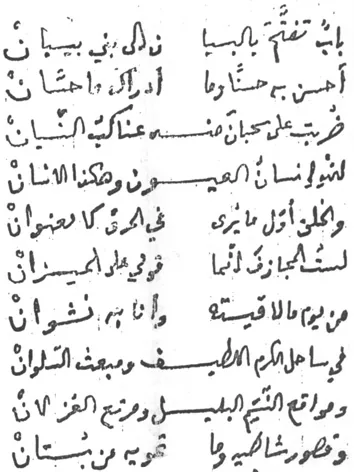 بابٌ تفتَّحَ بالبيا ن إلى بني بيسانْ
أحسن به حسنًا وما أدراك ما حسَّانْ
ضُربت على سحبان منـــه عناكب النسيانْ
إنسان العيـــون وهكذا الانسانْ
والخلق أوّل ما يُرى في الحرق كالعنوانْ
لستُ المجازف انّما قولي على الميـــزانْ
من يوم ما لاقيته وأنا به نشوانْ
في ساحل الكرم اللطيـــف ومبعث السلوانْ
ومواقع النسيم البليـــل ومرتع الغزلانْ
وقصور شاطيه وما تحويه من بُستانْ